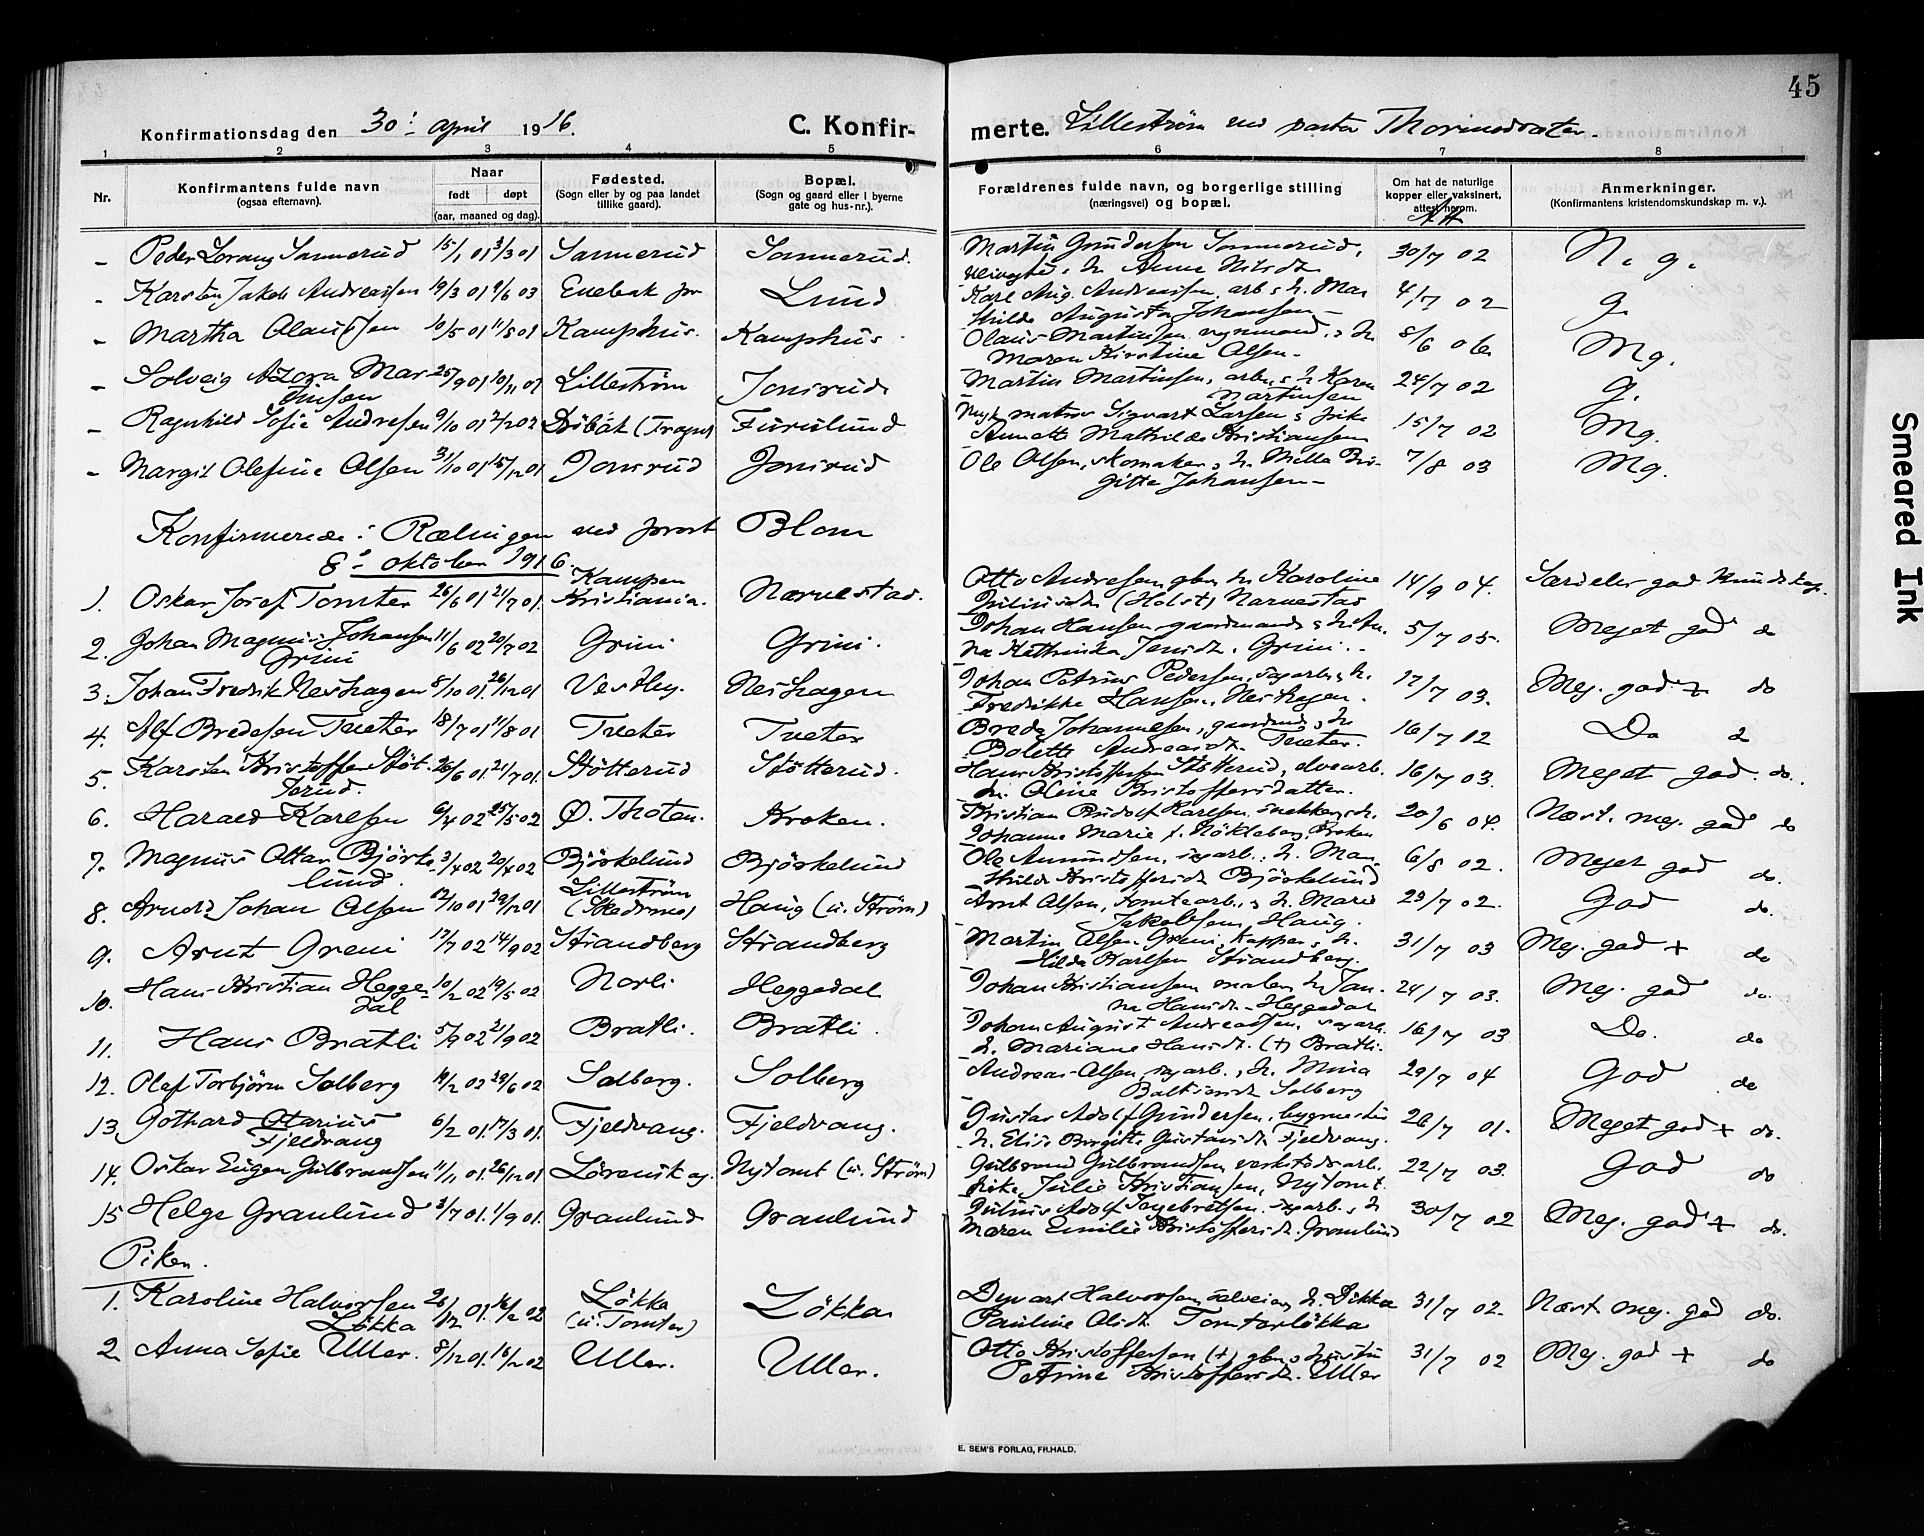 45
Konfirmationsdag den 30: april 1916.
C. Konfirmerte. Lillestrøm ved pastor
1 2 3 4 5 6 7 8
Nr.
Konfirmantens fulde navn
(ogsaa efternavn).
Naar
født døpt
(aar, maaned og dag).
Fødested.
(Sogn eller by og paa landet
tillike gaard).
Bopæl.
(Sogn og gaard eller i byerne
gate og hus-nr.).
Forældrenes fulde navn, og borgerlige stilling
(næringsvei) og bopæl.
Om hat de naturlige
kopper eller vaksinert,
attest herom.
Anmerkninger.
(Konfirmantens kristendomskundskap m. v.).
- Peder Lorang Sannerud 15/1 01 3/3 01 Sannerud Sannerud. Martin Gundersen Sannerud, 30/7 02 N. g.
h. Anne Nilsdt.
- Karsten Jakob Andreassen 19/3 01 Enebak Lund Karl Aug. Andreassen, arb. & h. Mat 4/7 02 g.
hilde Augusta Johansen -
- Martha Olaussen 10/5 01 11/8 01 Kamphus. Kamphus. Olaus Martinsen 8/6 06 Mg.
Maren Kirstine Olsen -
- Solveig Azora Mar 25/9 01 10/11 01 Lillestrøm Jonsrud Martin Martinsen, arb. & h. Karen 24/7 02 g.
tinsen
Martinsen
- Ragnhild Sofie Andresen 9/10 01 2/2 02 Dröbak (Frogn) Furulund matros Sigvart Larsen & pike 15/7 02 Mg.
Annette Mathilde Kristiansen
- Margit Olefine Olsen 31/10 01 15/12 01 Jonsrud Jonsrud Ole Olsen, skomaker & h. Milla Bir- 7/8 03 Mg.
gitte Johansen -
Konfirmerede i Rælingen ved prost Blom
8: oktober 1916.
1. Oskar Josef Tomter 26/6 01 21/7 01. Kampen
Kristiania. Nærnestad. Otto Andresen, gbr. h. Karoline 14/9 04. Særdeles god kundskap.
Juliusdt. (Holst) Nærnestad
2. Johan Magnus Johansen 11/6 02 20/7 02 Grini Grini. Johan Hansen, gaardmand & h. An- 5/7 05. Meget god do
Grini
na Kathrinka Jensdt. Grini. -
3. Johan Fredrik Neshagen 8/10 01. 26/12 01 Vestby. Neshagen Johan Petrus Pedersen, sagarb., h. 17/7 03. Meg. god + do
Fredrikke Hansen, Neshagen.
4. Alf Bredesen Tveter 18/7 01 11/8 01 Tveter Tveter Brede Johannesen, gaardmd. & h. 16/7 02 Do
Bolette Andreasdt. Tveter.
5. Karsten Kristoffer Støt- 26/6 01. 21/7 01. Støtterud Støtterud. Hans Kristoffersen Støtterud, elvearb. 16/7 03. Meget god. do.
terud.
h. Oline Kristoffersdatter.
6. Harald Karlsen 6/4 02 25/5 02 Ø. Thoten. Kroken. Kristian Rudolf Karlsen, snekker, h. 20/6 04. Næst. meg. god do
Johanne Marie f. Nökleberg, Kroken
7. Magnus Ottar Björke- 3/4 02 20/4 02 Björkelund Björkelund Ole Amundsen, sagarb. h. Mat- 6/8 02. Meget god do.
lund.
hilde Kristoffersdt. Björkelund
8. Arnold Johan Olsen 12/10 01 29/12 01 Lillestrøm
(Skedsmo) Haug (u. Strøm) Arnt Olsen, tomtearb. & h. Marie 23/7 02. God do.
Jakobsen, Haug.
9. Arnt Greni 17/7 02 14/9 02 Strandberg Strandberg Martin Olsen Greni h. 31/7 03 Meg. god + do
Hilda Karlsen Strandberg.
10. Hans Kristian Hegge- 10/2 02 19/5 02 Norli Heggedal Johan Kristiansen, maler h. Jan- 24/7 03. Meg. god do.
dal
na Hansdt. Heggedal
11. Hans Bratli 5/7 02 21/9 02 Bratli. Bratli. Johan August Andreassen, sagarb. 16/7 03 Do. do
h. Mariane Hansdt. (+) Bratli.
12. Olaf Torbjörn Solberg 14/2 02 29/6 02 Solberg. Solberg Andreas Olsen, sagarb., h. Mina 29/7 04 God do
Baltsersdt. Solberg
13. Gothard Otarius 6/2 01. 17/3 01. Fjeldvang. Fjeldvang. Gustav Adolf Gundersen, bygmester 26/7 01. Meget god + do.
Fjeldvang
h. Elise Birgitte Gustavsdt. Fjeldvang.
14. Oskar Eugen Gulbrandsen 11/11 01. 26/12 01 Lörenskog. Nytomt (u. Strøm) Gulbrand Gulbrandsen, verkstedsarb. 22/7 03. God do
pike, Julie Kristiansen, Nytomt.
15 Helge Granlund 3/7 01. 1/9 01. Granlund Granlund Julius Adolf Ingebretsen, sagarb. & h. 30/7 02 Meg. god + do.
Maren Emilie Kristoffersdt. Granlund
Piker.
1. Karoline Halvorsen 26/12 01. 16/2 02 Løkka
(u. Tomter) Løkka Halvorsen, h. 31/7 02 Næst. meg. god do.
Løkka
Pauline Olsdt. Tomterløkka
2. Anna Sofie Uller. 8/12 01. 16/2 02 Uller. Uller. Otto Kristoffersen (+) gbr. & hustru 31/7 02 Meg. god + do
Petrine Kristoffersdt. Uller
E. SEM'S FORLAG, FR.HALD.
Smeared Ink